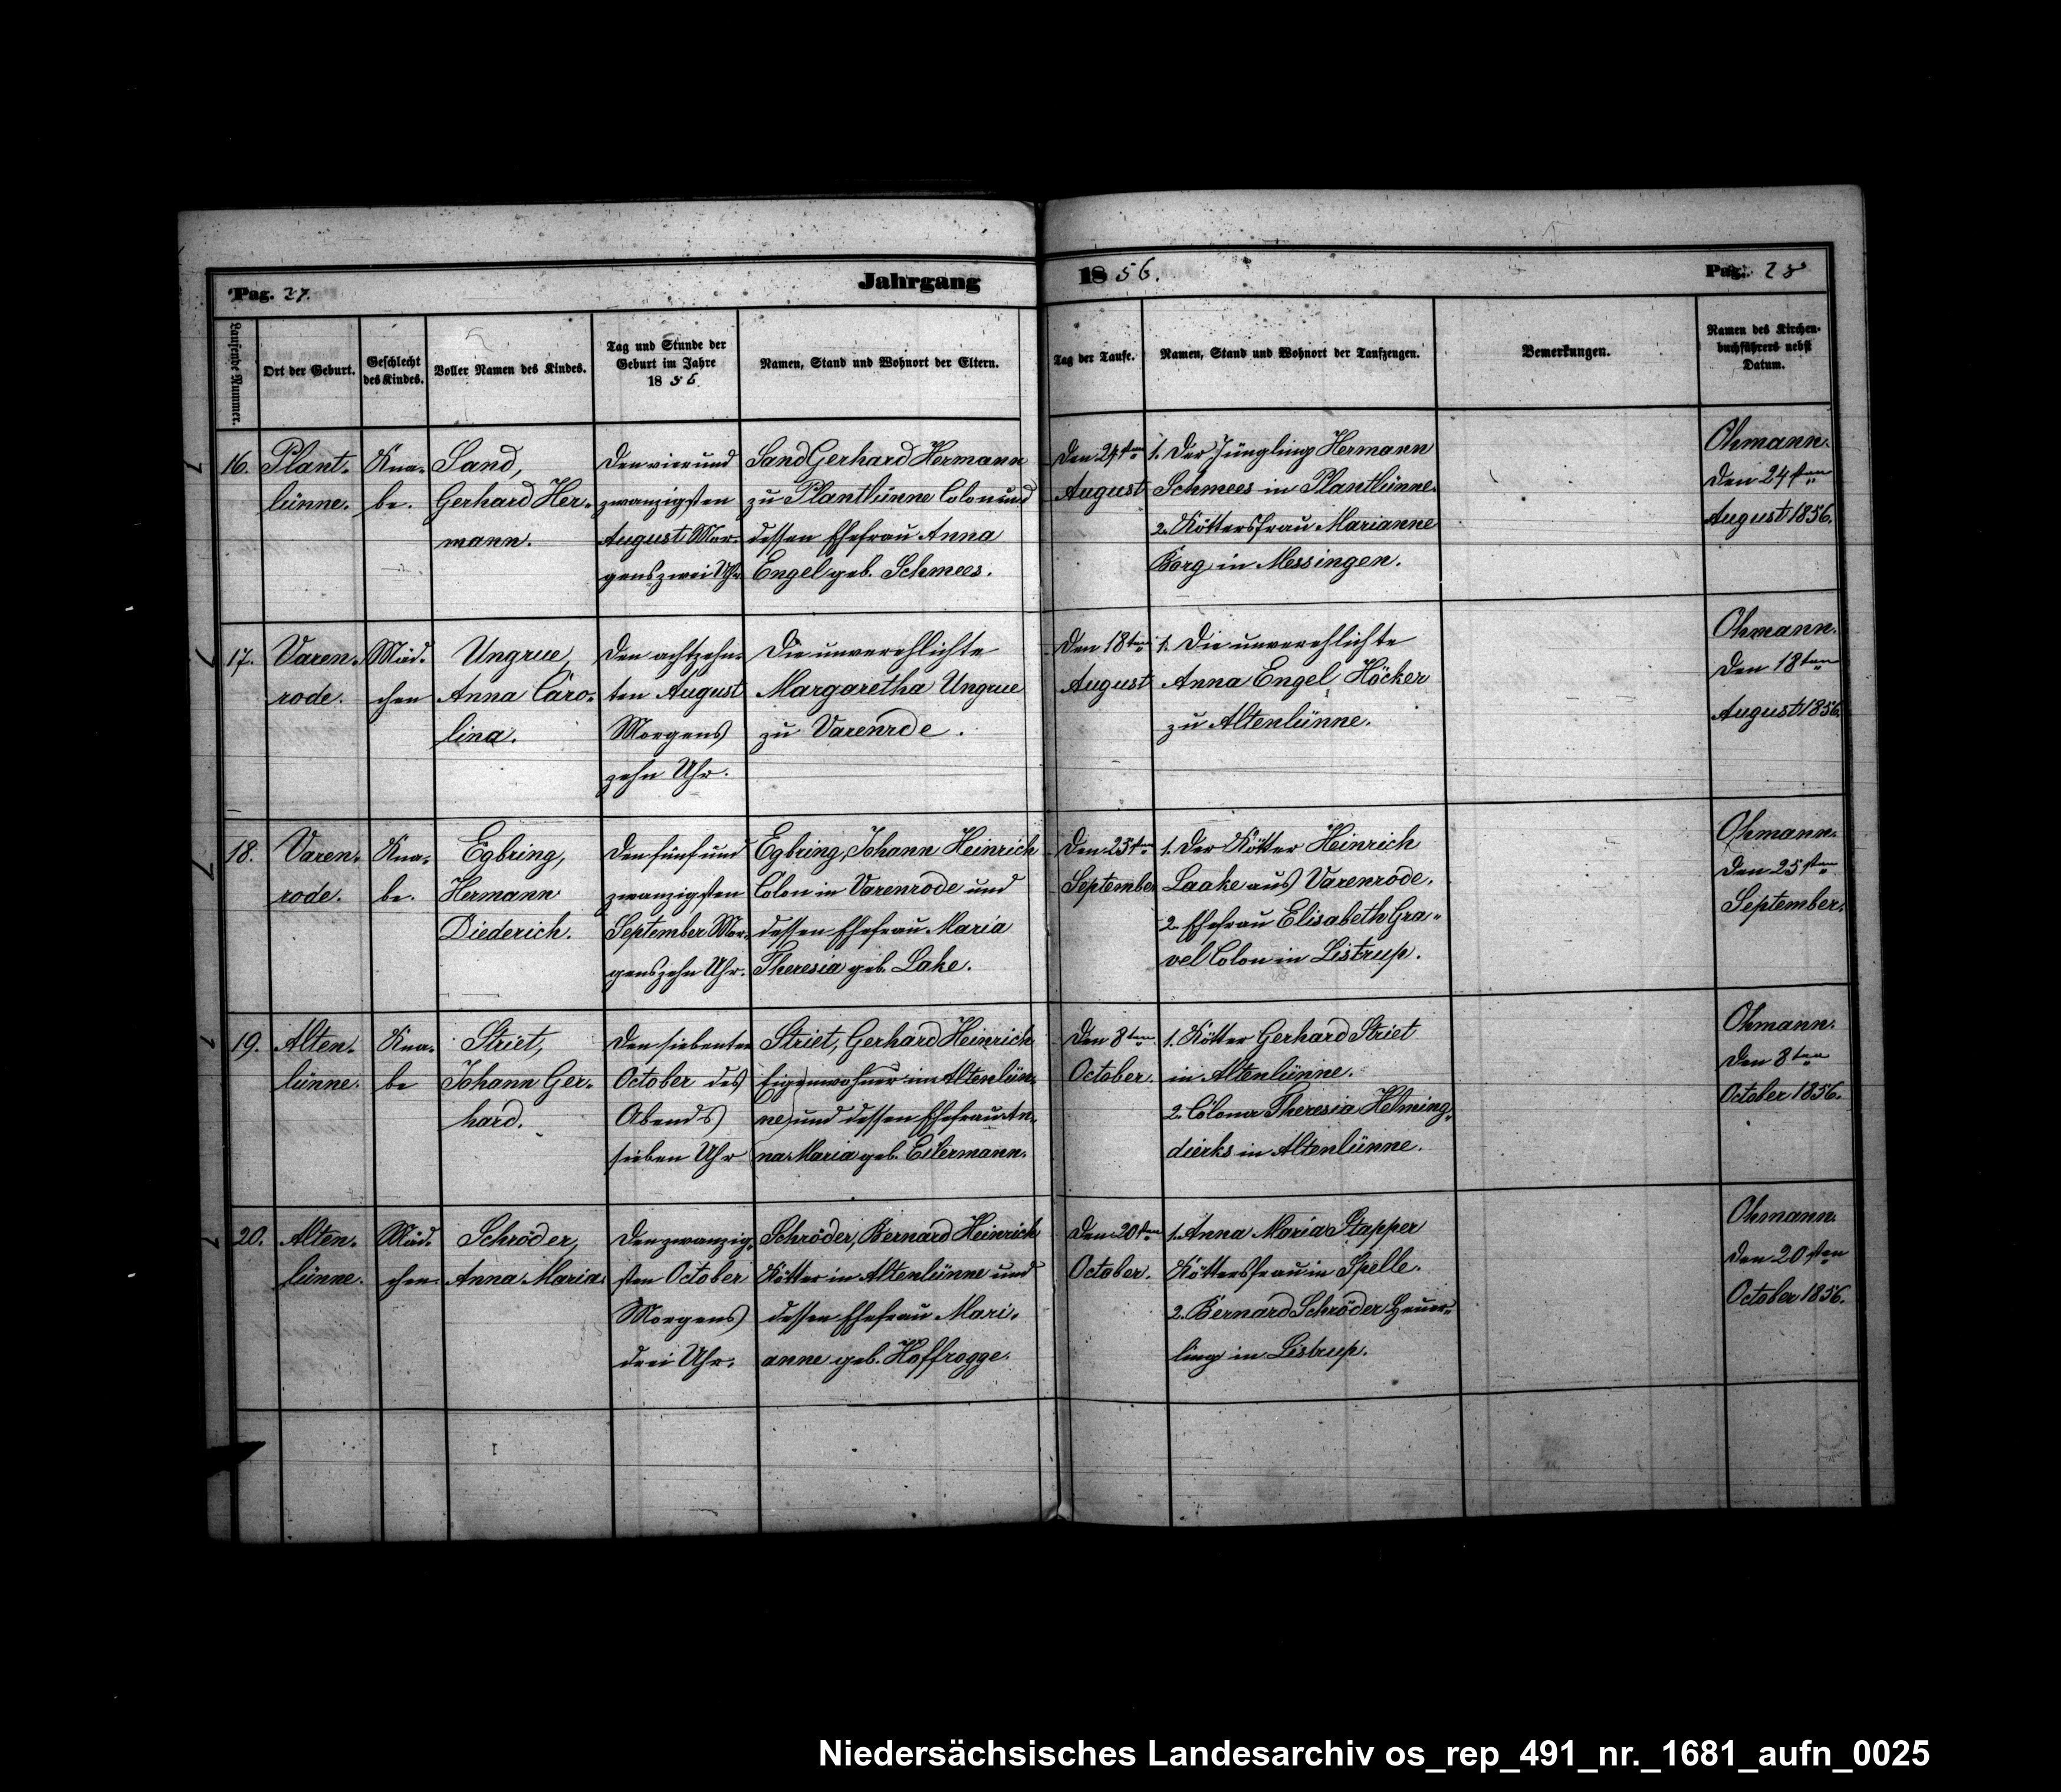 Pag. 27.
Jahrgang
1856.
Pag. 28
Laufende Nummer.
Ort der Geburt.
Geschlecht
des Kindes.
Voller Namen des Kindes.
Tag und Stunde der
Geburt im Jahre
1856.
Namen, Stand und Wohnort der Eltern.
Tag der Taufe.
Namen, Stand und Wohnort der Taufzeugen.
Bemerkungen.
Namen des Kirchen-
buchführers nebst
Datum.
16.
Plant-
lünne.
Kna-
be.
Sand,
Gerhard Her-
mann.
Den vier und
zwanzigsten
August Mor-
gens zwei Uhr
Sand Gerhard Hermann
zu Plantlünne Colon und
dessen Ehefrau Anna
Engel geb. Schmees.
Den 24sten
August
1. Der Jüngling Hermann
Schmees in Plantlünne.
2. Köttersfrau Marianne
Borg in Messingen.
Ohmann.
Den 24sten
August 1856.
17.
Varen-
rode.
Mäd-
chen
Ungrue,
Anna Caro-
lina.
Den achtzehn-
ten August
Morgens
zehn Uhr.
Die unverehlichte
Margaretha Ungrue
zu Varenrde.
Den 18ten
August
1. Die unverehlichte
Anna Engel Höcker
zu Altenlünne.
Ohmann.
Den 18ten
August 1856.
18.
Varen-
rode.
Kna-
be.
Egbring,
Hermann
Diederich.
Den fünf und
zwanzigsten
September Mor-
gens zehn Uhr.
Egbring, Johann Heinrich
Colon in Varenrode und
dessen Ehefrau Maria
Theresia geb. Lake.
Den 25sten
September
1. Der Kötter Heinrich
Laake aus Varenrode.
2. Ehefrau Elisabeth Gra-
vel Colon in Listrup.
Ohmann.
Den 25sten
September.
19.
Alten-
lünne.
Kna-
be
Striet,
Johann Ger-
hard.
Den siebenten
October des
Abends
sieben Uhr
Striet, Gerhard Heinrich
Eigenwohner in Altenlün-
ne und dessen Ehefrau An-
na Maria geb. Eilermann.
Den 8ten
October.
1. Kötter Gerhard Striet
in Altenlünne.
2. Colona Theresia Helming-
dierks in Altenlünne.
Ohmann.
Den 8ten
October 1856.
20.
Alten-
lünne.
Mäd-
chen
Schröder,
Anna Maria.
Den zwanzig-
sten October
Morgens
drei Uhr.
Schröder, Bernard Heinrich
Kötter in Altenlünne und
dessen Ehefrau Mari-
anne geb. Hoffrogge.
Den 20sten
October.
1. Anna Maria Stapper
Köttersfrau in Spelle.
2. Bernard Schröder Heuer-
ling in Listrup.
Ohmann.
Den 20sten
October 1856.
Niedersächsisches Landesarchiv os_rep_491_nr._1681_aufn_0025